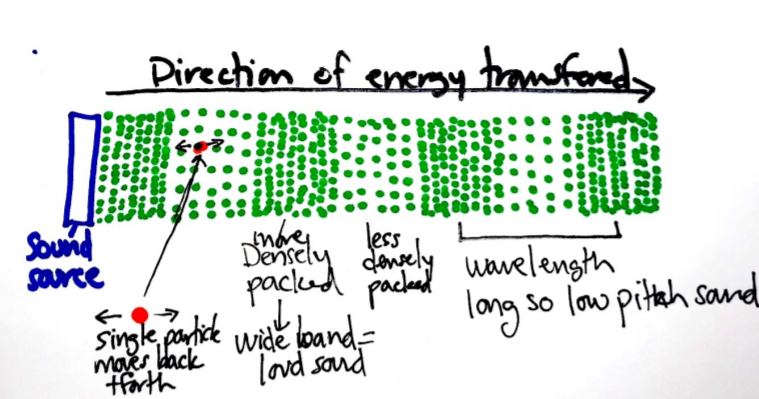 Direction of energy transfered
Sound
source
single particle
moves back
+forth
more
Densely
packed
wide band =
loud sound
less
densely
packed
wavelength
long so low pitch sand